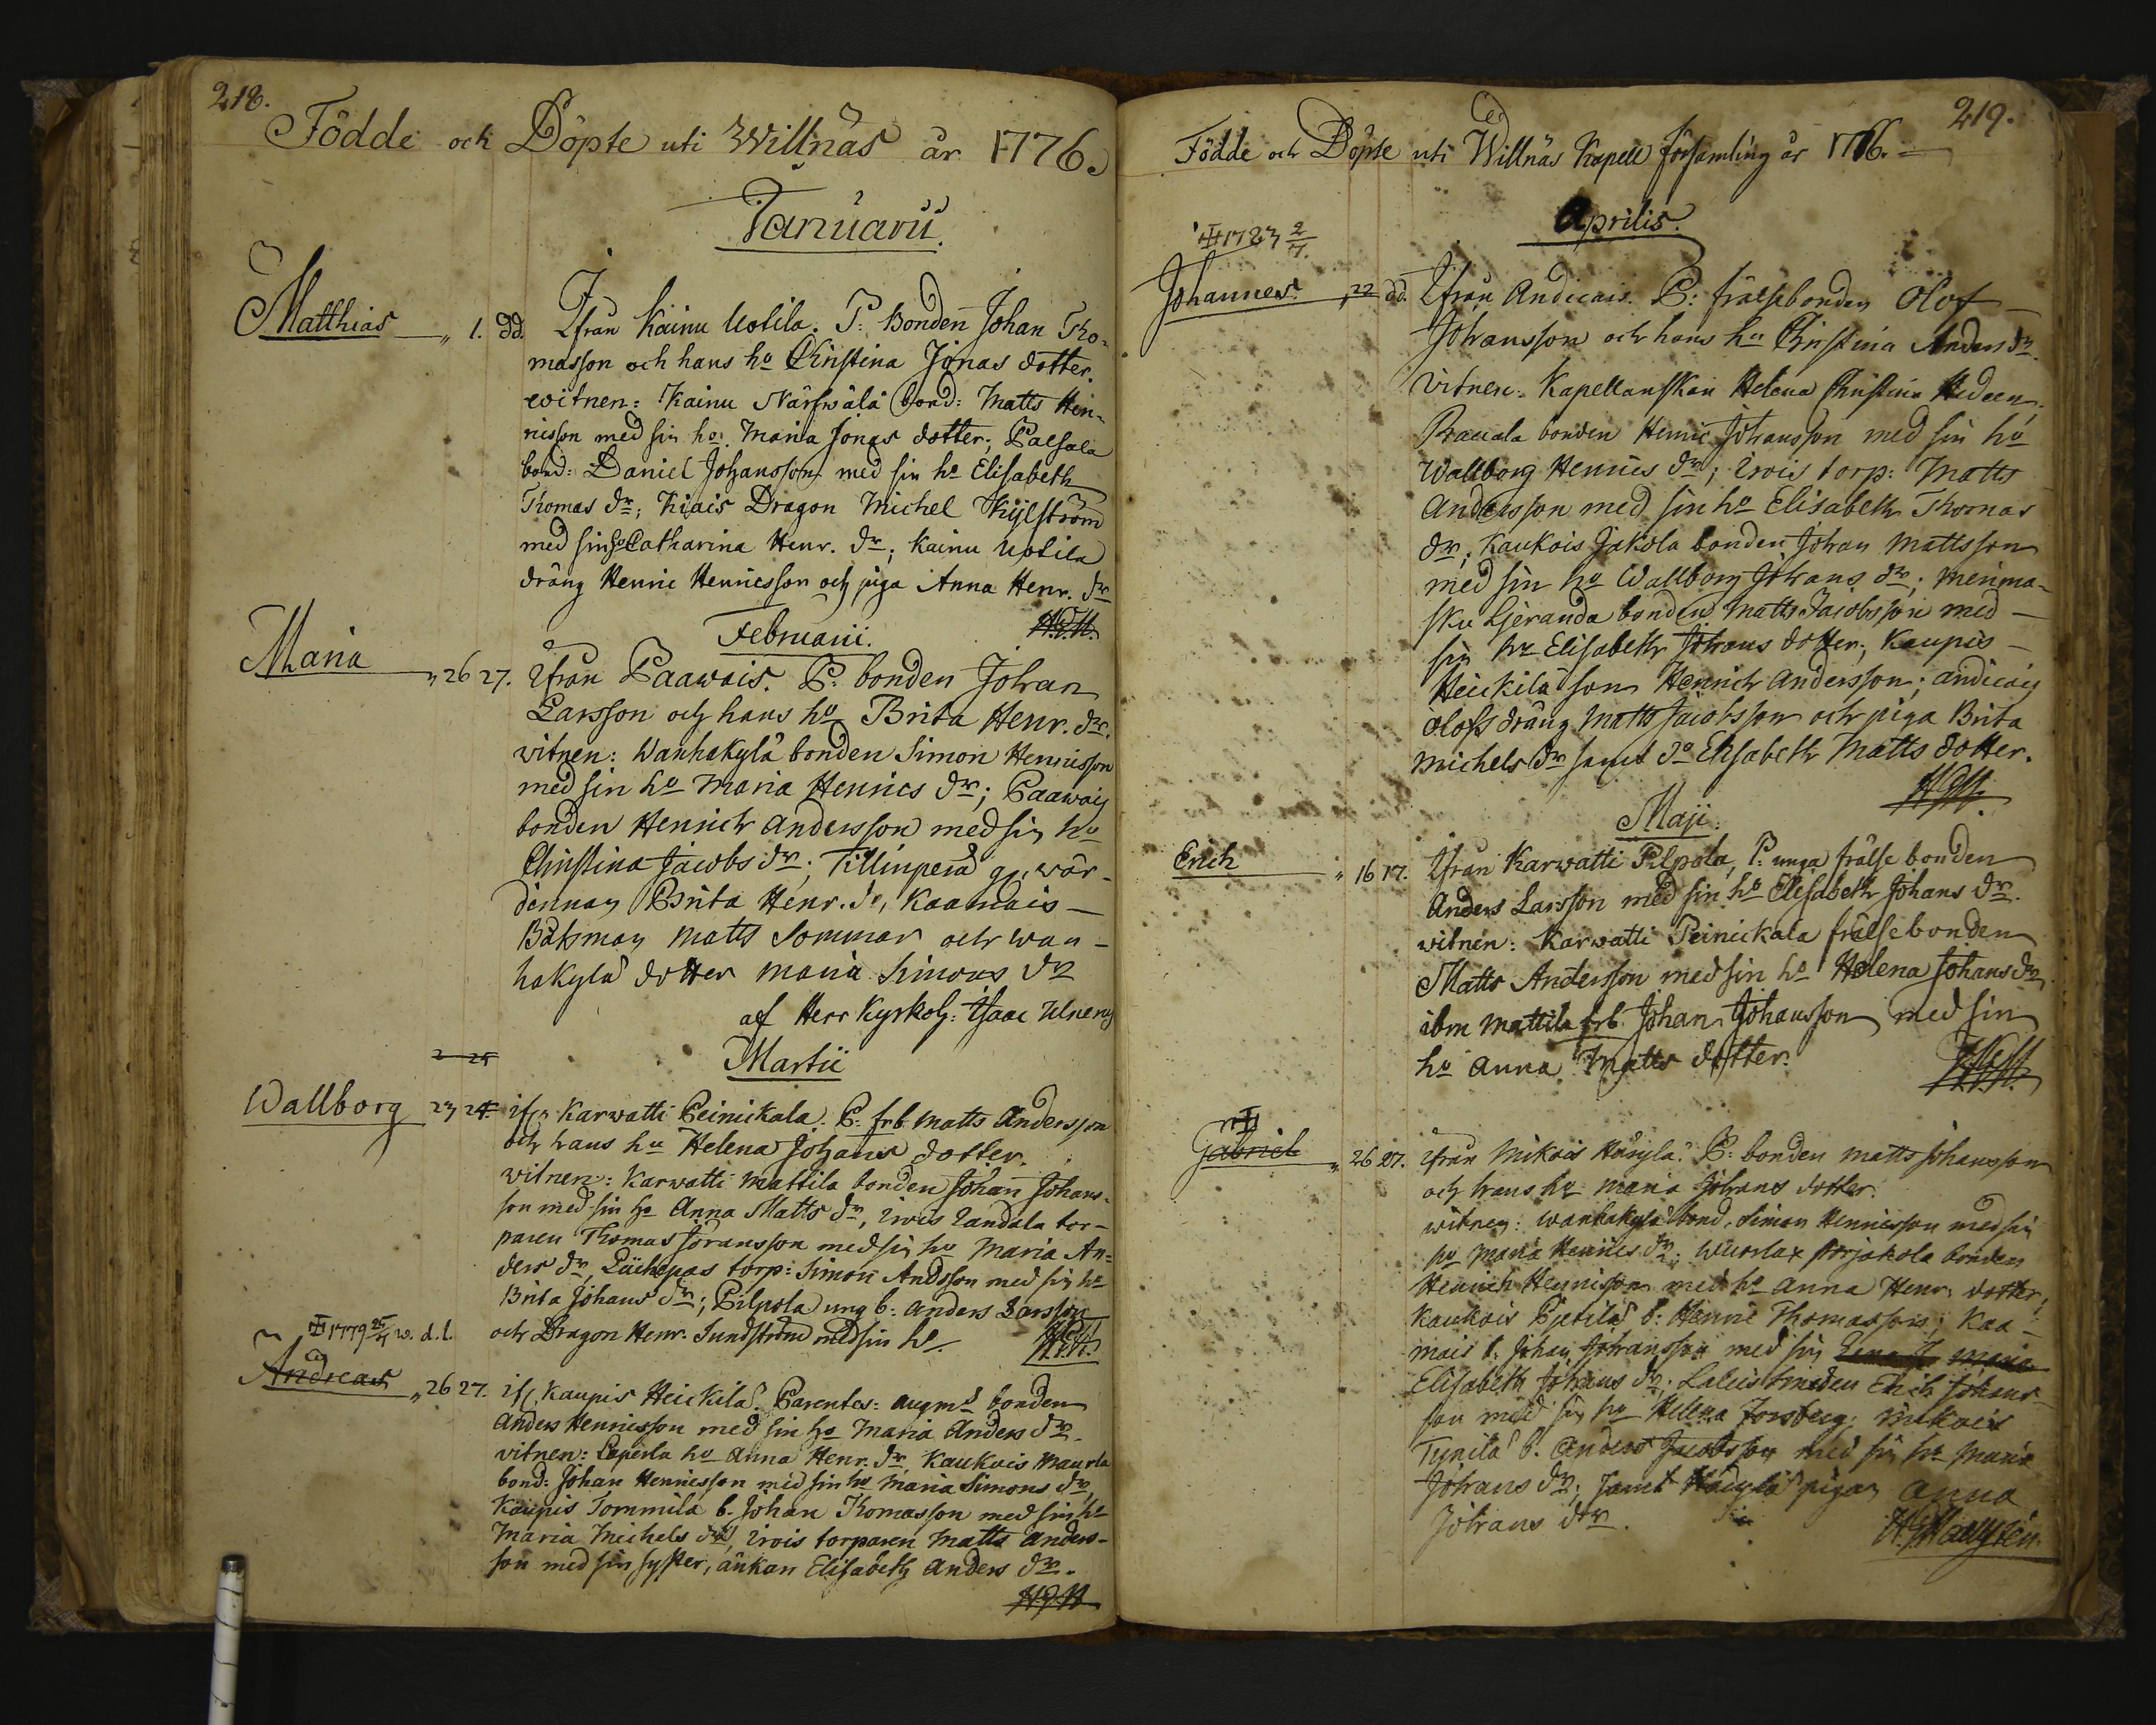 218.
Födde och Döpte uti Willnäs år 1776.
Januarii.
Matthias „ 1. dd. Ifrån Kainu Uotila. P: Bonden Johan Tho-
masson och hans hu Christina Jonas dotter.
witnen: Kainu Närfwälä bond: Matts Hen-
ricsson med sin hu. Maria Jonas dotter; Palsala
bond: Daniel Johansson med sin hu Elisabeth
Thomas dr; Kiais Dragon Michel Kylström
med sin hu Catharina Henr. dr; Kainu Uotila
dräng Henric Henricsson och piga Anna Henr. dr
Februarii.
Maria „ 26 27. Ifrån Paawais. P: bonden Johan
Larsson och hans hu Brita Henr. dr.
witnen: Wanhakylä bonden Simon Henricsson
med sin hu Maria Henrics dr; Paawais
bonden Henrich Andersson med sin hu
Christina Jacobs dr; Tillinperä wär-
dinnan Brita Henr. dr, Kaamais
Båtsman Matts Sommar och wan-
hakylä dotter Maria Simons dr
af Herr Kyrkoh: Isaac Ulneng
Martii
2 25
Wallborg 23 24 if. Karwatti Peinickala. P: frb. Matts Andersson
och hans hu Helena Johans dotter.
witnen: Karwatti Mattila bonden Johan Johans-
son med sin hu Anna Matts dr, IroisЛандala tor-
paren Thomas Johansson med sin hu Maria An-
ders dr, torp: Simon Andsson med sin hu
Brita Johans dr; Pilpola ung b: Anders Larsson
och Dragon Henr. Sundström med sin hu.
1779 25/4 w. d. l.
Andreas „ 26 27. if. Kaupis Heickilä. Parentes: augmts bonden
Anders Henricsson med sin hu Maria Anders dr.
vitnen: Leperla hu Anna Henr. dr Kaukois Maurla
bond: Johan Henricsson med sin hu Maria Simons dr,
Kaupis Tommila b. Johan Thomasson med sin hu
Maria Michels dr, Irois torparen Matts Anders-
son med sin syster, änkan Elisabeth Anders dr.
219.
Födde och Döpte uti Willnäs Kapell Församling år 1776.
Aprilis.
1783 2/7.
Johannes „ 22 dd. Ifrån Andicais. P: frälsebonden Olof
Johansson och hans hu Christina Anders dr.
Vitnen: Kapellanskan Helena Christina Hedeen,
Rauala bonden Henric Johansson med sin hu
Wallborg Henrics dr; Irois torp: Matts
Andersson med sin hu Elisabeth Thomas
dr; Kaukois Jakola bonden Johan Mattsson
med sin hu Wallborg Johans dr; Menma-
sku Geranda bonden Matts Jacobsson med
sin hu Elisabeth Johans dotter; Kaupis
Heickilä son Henrich Andersson; Andicais
Olofs dräng Matts Jacobsson och piga Brita
Michels dr samt do Elisabeth Matts dotter.
Maji.
Erich „ 16 17. Ifrån Karwatti Pilpola, P: unga frälse bonden
Anders Larsson med sin hu Elisabeth Johans dr.
witnen: Karwatti Peinickala frälsebonden
Matts Andersson med sin hu Helena Johans dr,
ibm Mattila frb. Johan Johansson med sin
hu Anna Matts dotter.
Gabriel „ 26 27. Ifrån Mikois Håkylä. P: bonden Matts Johansson
och hans hu Maria Johans dotter.
witnen: Wanhakylä bond. Simon Henricsson med sin
hu Maria Henrics dr; Storjakola bonden
Henrich Henricsson med hu Anna Henr. dotter;
Kaukois Pietilä b: Henric Thomasson; Kaa-
mais b. Johan Johansson med sin Maria
Elisabeth Johans dr; Laleis smeden Erich Johans-
son med sin hu Helena Forsberg; Mikois
Tynilä b. Anders Jacobsson med sin hu Maria
Johans dr; samt Håkylä pigan Anna
Johans dr.